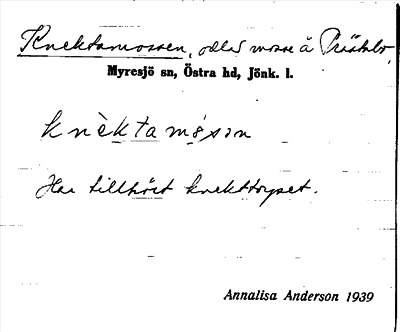 Knektamossen, odlad mosse å Prästabo,
Myresjö sn, Östra hd, Jönk. l.
knèktamósan
Har tillhört knekttorpet.
Annalisa Anderson 1939